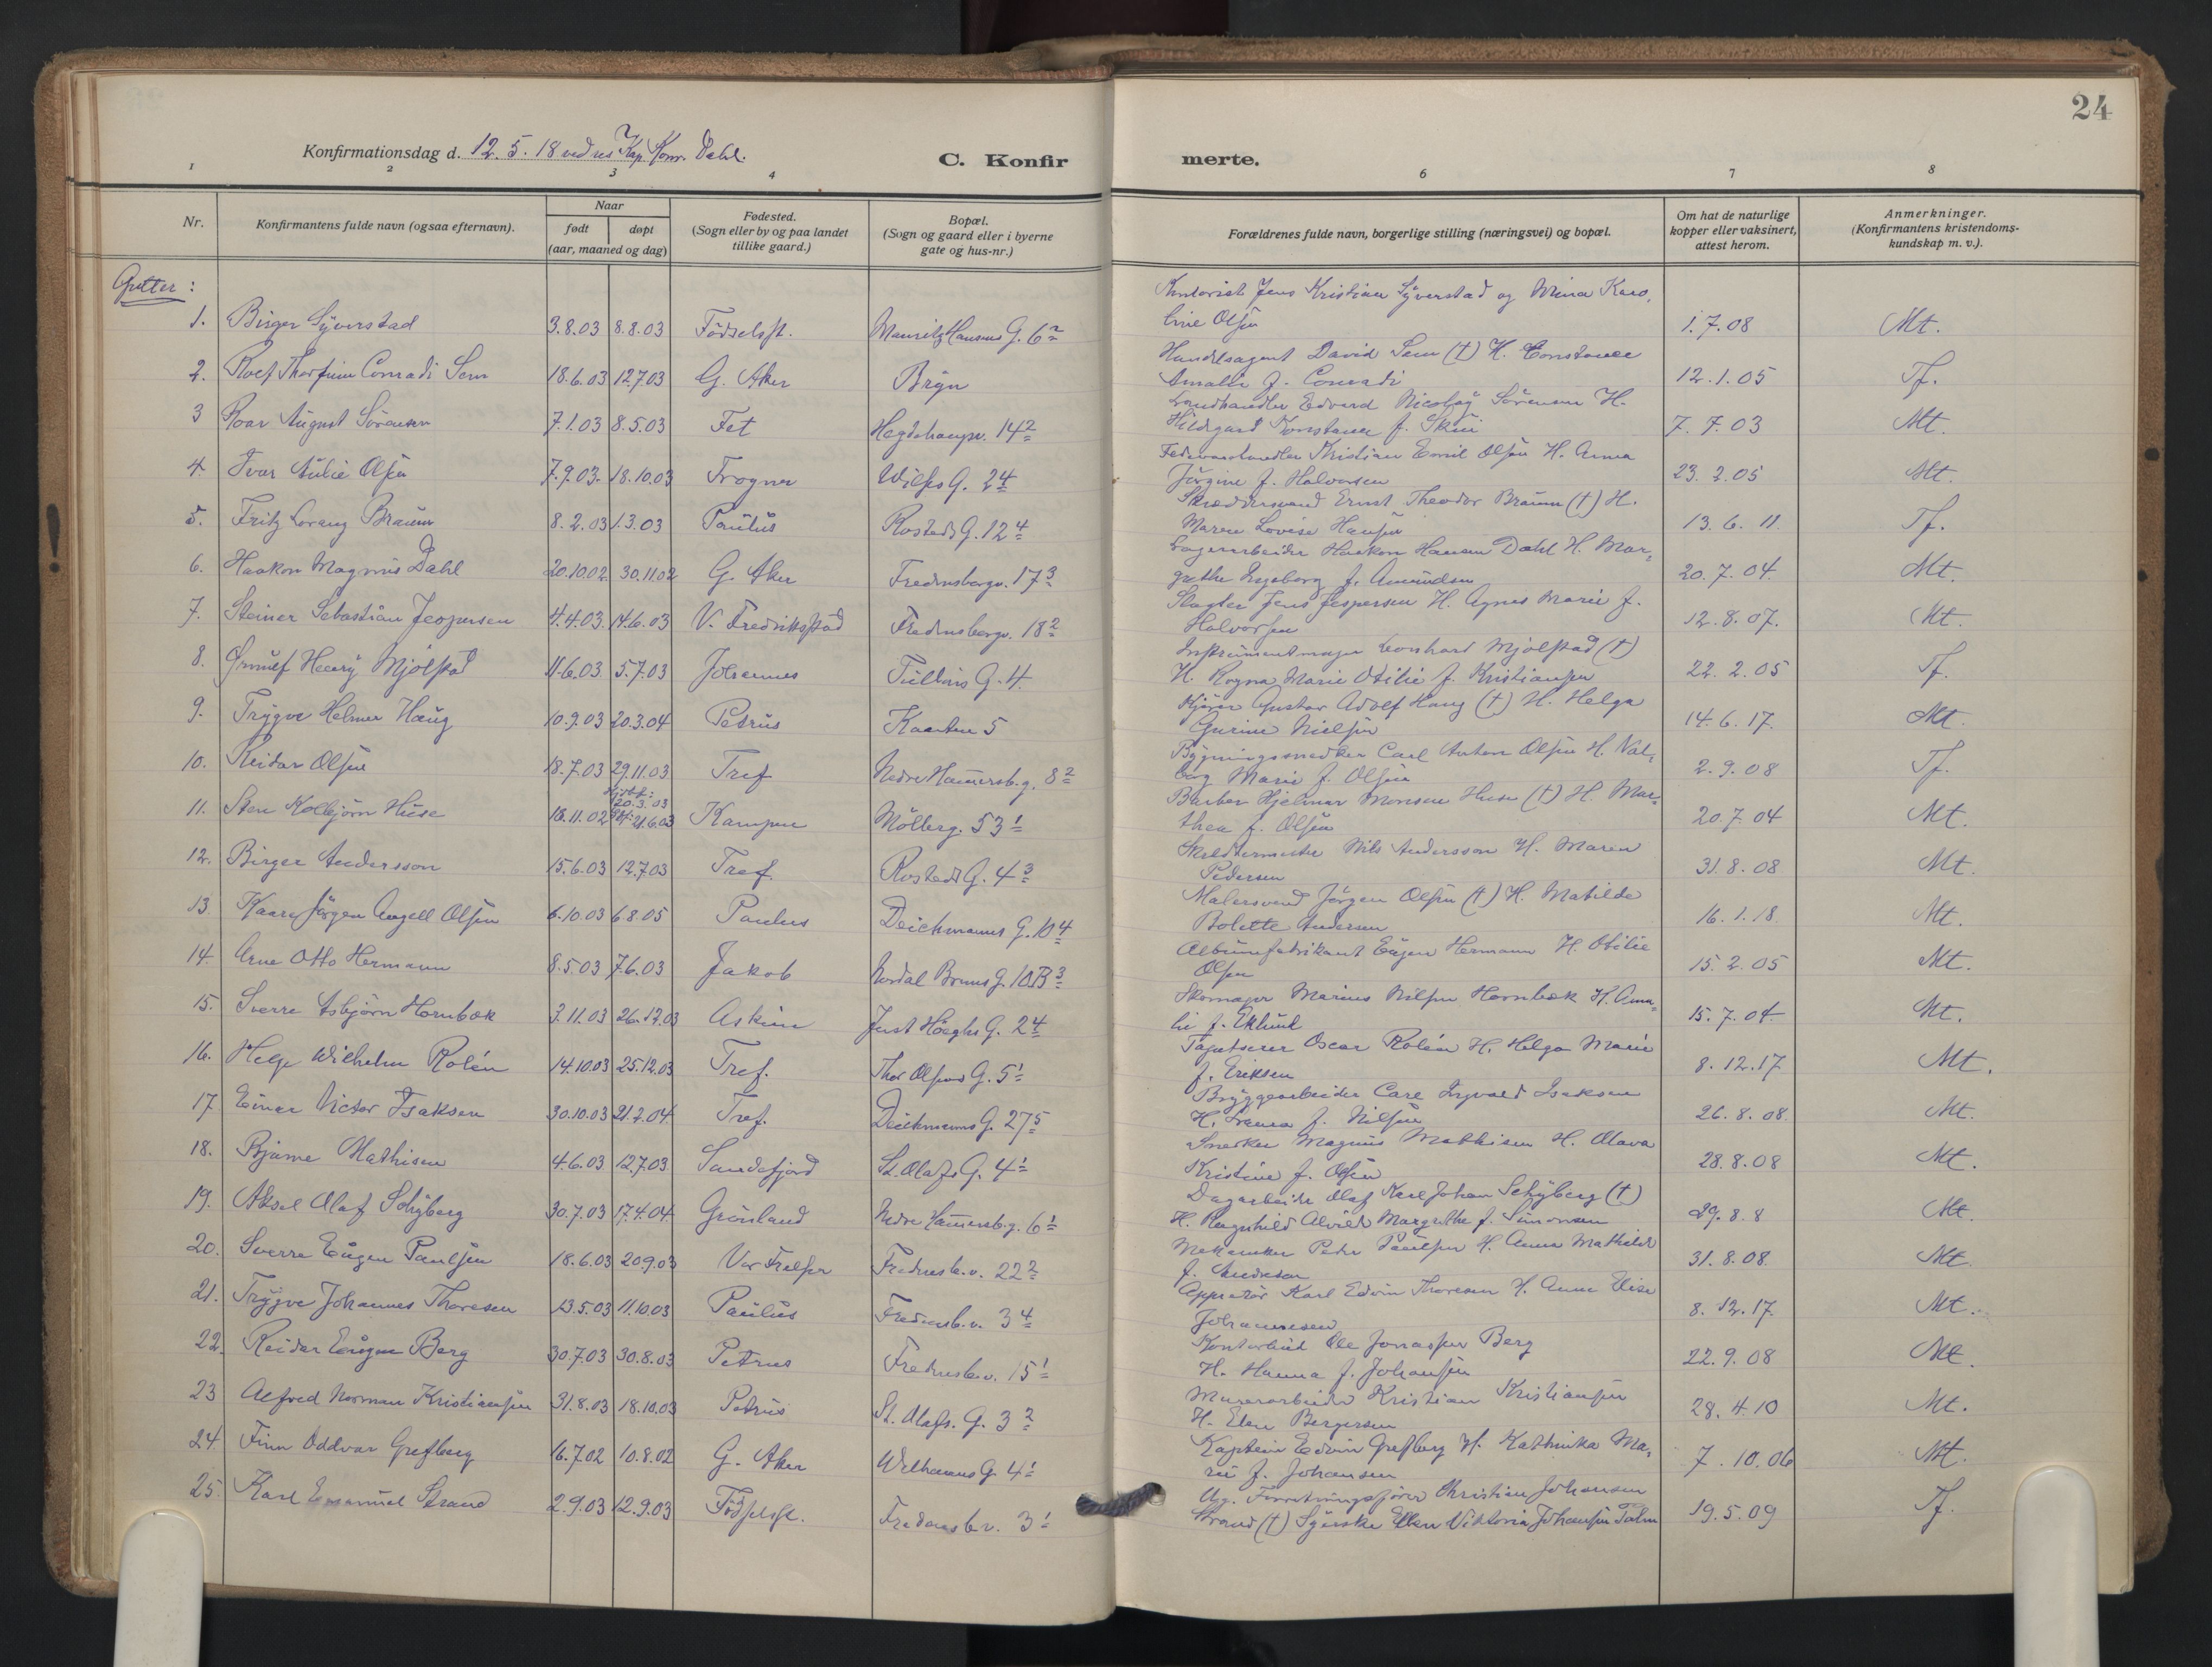 24
Konfirmationsdag d. 12. 5. 18 ved res. Kap. Konr. Dahl.
C. Konfirmerte.
1 2 3 4 6 7 8
Nr.
Konfirmantens fulde navn (ogsaa efternavn).
Naar
født døpt
(aar, maaned og dag)
Fødested.
(Sogn eller by og paa landet
tillike gaard.)
Bopæl.
(Sogn og gaard eller i byerne
gate og hus-nr.)
Forældrenes fulde navn, borgerlige stilling (næringsvei) og bopæl.
Om hat de naturlige
kopper eller vaksinert,
attest herom.
Anmerkninger.
(Konfirmantens kristendoms-
kundskap m. v.).
Gutter:
Kontorist Jens Kristian Syverstad og Mina Karo-
1. Birger Syverstad 3.8.03 8.8.03 Födselsst. Mauritz Hansens G. 6² line Olsen 1.7.08 Mt.
Handelsagent David Sem (†) H. Constance
2. Rolf Thorfinn Conradi Sem 18.6.03 12.7.03 G. Aker Bryn Amalie f. Conradi 12.1.05 Tf.
Landhandler Edvard Nicolay Sörensen H.
3 Roar August Sörensen 7.1.03 8.5.03 Fet Hegdehaugsv. 14² Hildegard Konstance f. Skui 7.7.03 Mt.
Kristian Emil Olsen H. Anna
4. Ivar Olsen 7.9.03. 18.10.03 Frogner Wilses G. 2⁴ Jörgine f. Halvorsen 23.2.05 Mt.
Skræddersvend Ernst Theodor Braun (†) H.
5. Fritz Lorang Braun 8.2.03 1.3.03 Paulus Rosteds G. 12⁴ Maren Lovise Hansen 13.6.11. Tf.
Lagerarbeider Haakon Hansen Dahl H. Mar-
6. Haakon Magnus Dahl 20.10.02 30.11.02 G. Aker Fredensborgv. 17³ grethe Ingeborg f. Amundsen 20.7.04. Mt.
Slagter Jens Jespersen H. Agnes Marie f.
7. Steinar Sebastian Jespersen 4.4.03. 14.6.03 V. Fredrikstad Fredensborgv. 18² Halvorsen 12.8.07. Mt.
Instrumentmager Leonhard Mjölstad (†)
8. Ørnulf Henry Mjölstad 11.6.03. 5.7.03 Johannes Tullins G. 4. H. Ragna Marie Otilie f. Kristiansen 22.2.05 Tf.
Gustav Adolf Haug (†) H. Helga
9. Trygve Helmer Haug 10.9.03 20.3.04 Petrus 5 Gurine Nielsen 14.6.17. Mt.
Bygningssnedker Carl Anton Olsen H. Val-
10. Reidar Olsen 18.7.03 29.11.03 Tref. Nedre Hammersb.g. 8² borg Marie f. Olsen 2.9.08 Tf.
Barber Hjelmar Monsen Huse (†) H. Mar-
11. Sten Kolbjörn Huse 18.11.02 Hjdøpt: 20.3.03 21.6.03 Kampen Mölberg. 53¹ thea f. Olsen 20.7.04 Mt.
Skreddermester Nils Andersson H. Maren
12. Birger Andersson 15.6.03 12.7.03 Tref. Rosteds G. 4³ Pedersen 31.8.08 Mt.
Malersvend Jörgen Olsen (†) H. Matilde
13. Kaare Jörgen Angell Olsen 6.10.03 6.8.05 Paulus Deichmanns G. 10⁴ Bolette Andersen 16.1.18. Mt.
Albumfabrikant Eugen Hermann H. Otilie
14. Arne Otto Hermann 8.5.03 7.6.03 Jakob Nordal Bruns g. 10.B³ Olsen 15.2.05 Mt.
Skomager Marius Nilsen Hornbæk H. Ama-
15. Sverre Asbjörn Hornbæk 3.11.03 26.12.03 Askim Just Höeghs G. 2⁴ lie f. Eklund 15.7.04. Mt.
Tapetserer Oscar Rolén H. Helga Marie
16. Helge Wilhelm Rolén 14.10.03 25.12.03 Tref. Thor Olsens G. 5¹ f. Eriksen 8.12.17 Mt.
Bryggearbeider Carl Ingvald Isaksen
17 Einar Victor Isaksen 30.10.03 21.2.04 Tref. Deichmanns G. 27⁵ H. f. Nilsen 26.8.08. Mt.
Snedker Magnus Mathisen H. Olava
18. Bjarne Mathisen 4.6.03 12.7.03 Sandefjord St. Olafs G. 4¹ Kristine f. Olsen 28.8.08 Mt.
Dagarbeider Olaf Karl Johan Schyberg (†)
19. Aksel Olaf Schyberg 30.7.03 17.4.04 Grönland Nedre Hammersb.g. 6¹ H. Ragnhild Alvilde Margrethe f. Simonsen 29.8.8 Mt.
Mekaniker Peder Paulsen H. Anna Mathilde
20. Sverre Eugen Paulsen 18.6.03 20.9.03 Vor Frelser Fredensb.v. 22² f. Andresen 31.8.08. Mt.
Karl Edvin Thoresen H. Anna Elise
21. Trygve Johannes Thoresen 13.5.03 11.10.03 Paulus Fredensb.v. 3⁴ Johannesen 8.12.17. Mt.
Kontorbud Ole Jonassen Berg
22. Reidar Eugen Berg 30.7.03 30.8.03 Petrus Fredensb.v. 15¹ H. Hanna f. Johansen 22.9.08 Mt.
Murerarbeider Kristian Kristiansen
23 Alfred Norman Kristiansen 31.8.03 18.10.03 Petrus St. Olafs. G. 3² H. Elen Bergersen 28.4.10 Mt.
Kaptein Edvin Grefberg H. Kathinka Ma-
24. Finn Oddvar Grefberg 16.7.02 10.8.02 G. Aker Welhavens G. 4¹ rie f. Johansen 7.10.06 Mt.
Ug. Forretningsfører Christian Johansen
25. Karl Emanuel Strand 2.9.03 12.9.03 Födselsst. Fredensb.v. 3¹ Strand (†) Syerske Ellen Viktoria Johansen 19.5.09 Tf.